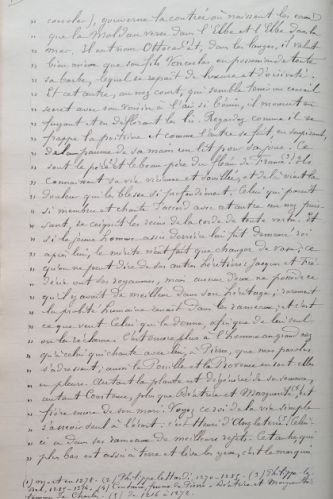 consoler), gouverna la contrée où naissent les eaux
" que la Moldau verse dans l'Elbe et l'Elbe dans la
" mer. Il eut nom Ottocar, et, dans les langes, il valut
" bien mieux que son fils Venceslas en possession de toute
" sa barbe, lequel se repaît de luxure et d'oisiveté.
" Et cet autre, au nez court, qui semble tenir un conseil
" secret avec son voisin à l'air si bénin, il mourut en
" fuyant et en déflorant le lis. Regardez comme il se
" frappe la poitrine et comme l'autre se fait, en soupirant,
" de la paume de sa main un lit pour sa joue. Ce
" sont le père et le beau-père du fléau de France. Ils
" connaissent sa vie vicieuse et souillée, et de là vient la
" douleur qui les blesse si profondément. Celui qui paraît
" si membru et chante d'accord avec cet autre au nez puis-
" sant, se ceignit les reins de la corde de toute vertu. Et
" si le jeune homme assis derrière lui fût demeuré roi
" après lui, le mérite n'eût fait que changer de vase; ce
" qu'on ne peut dire de ses autres héritiers; Jacques et Fré-
" déric ont ses royaumes, mais aucun d'eux ne possède ce
" qu'il y avait de meilleur dans son héritage; rarement
" la probité humaine renaît dans les rameaux; et c'est
" ce que veut Celui qui la donne, afin que de lui seul
" on la réclame. C'est encore plus à l'homme au grand nez
" qu'à celui qui chante avec lui, à Pierre, que mes paroles
" s'adressent; aussi la Pouille et la Provence en sont elles
" en pleurs. Autant la plante est dégénérée de sa semence,
" autant Constance, plus que Béatrice et Marguerite, est
" fière encore de son mari. Voyez ce roi de la vie simple
" s'asseoir seul à l'écart: c'est Henri d'Angleterre. Celui-
" ci a dans ses rameaux de meilleurs rejets. Cet autre qui
" plus bas est assis à terre et lève les yeux, c'est le marquis
(1) mort en 1278. (2) Philippe le Hardi, 1270-1285. (3) Philippe le